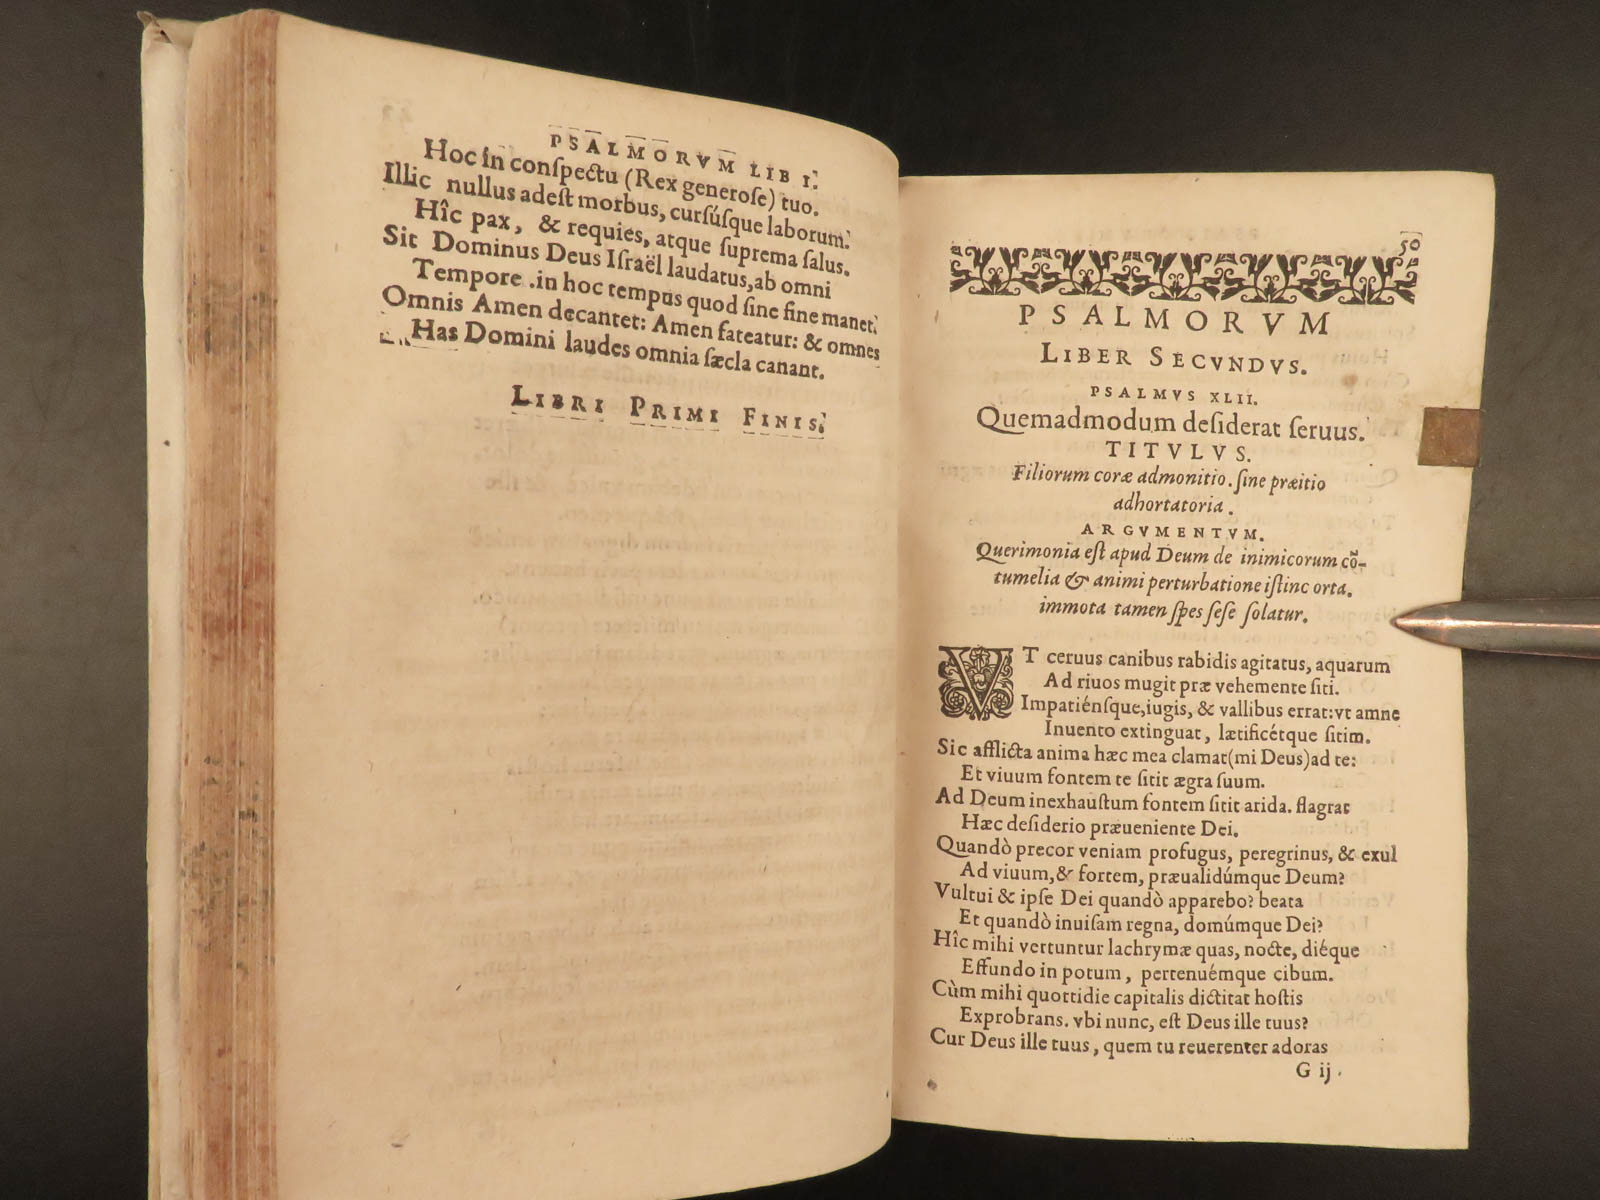 PSALMORVM LIB I.
Hoc in conſpectu (Rex generoſe) tuo.
Illic nullus adeſt morbus, curſúſque laborum.
Hîc pax, & requies, atque ſuprema ſalus.
Sit Dominus Deus Iſraël laudatus, ab omni
Tempore .in hoc tempus quod ſine fine manet.
Omnis Amen decantet: Amen fateatur: & omnes
Has Domini laudes omnia ſæcla canant.
LIBRI PRIMI FINIS.
50
PSALMORVM
LIBER SECVNDVS.
PSALMVS XLII.
Quemadmodum deſiderat ſeruus.
TITVLVS.
Filiorum coræ admonitio. ſine præitio
adhortatoria.
ARGVMENTVM.
Querimonia eſt apud Deum de inimicorum cõ-
tumelia & animi perturbatione iſtinc orta.
immota tamen ſpes ſeſe ſolatur.
VT ceruus canibus rabidis agitatus, aquarum
Ad riuos mugit præ vehemente ſiti.
Impatiénſque, iugis, & vallibus errat: vt amne
Inuento extinguat, lætificétque ſitim.
Sic afflicta anima hæc mea clamat (mi Deus) ad te:
Et viuum fontem te ſitit ægra ſuum.
Ad Deum inexhauſtum fontem ſitit arida. flagrat
Hæc deſiderio præueniente Dei.
Quandò precor veniam profugus, peregrinus, & exul
Ad viuum, & fortem, præualidúmque Deum?
Vultui & ipſe Dei quandò apparebo? beata
Et quandò inuiſam regna, domúmque Dei?
Hîc mihi vertuntur lachrymæ quas, nocte, diéque
Effundo in potum, pertenuémque cibum.
Cùm mihi quottidie capitalis dictitat hoſtis
Exprobrans. vbi nunc, eſt Deus ille tuus?
Cur Deus ille tuus, quem tu reuerenter adoras
G ij.